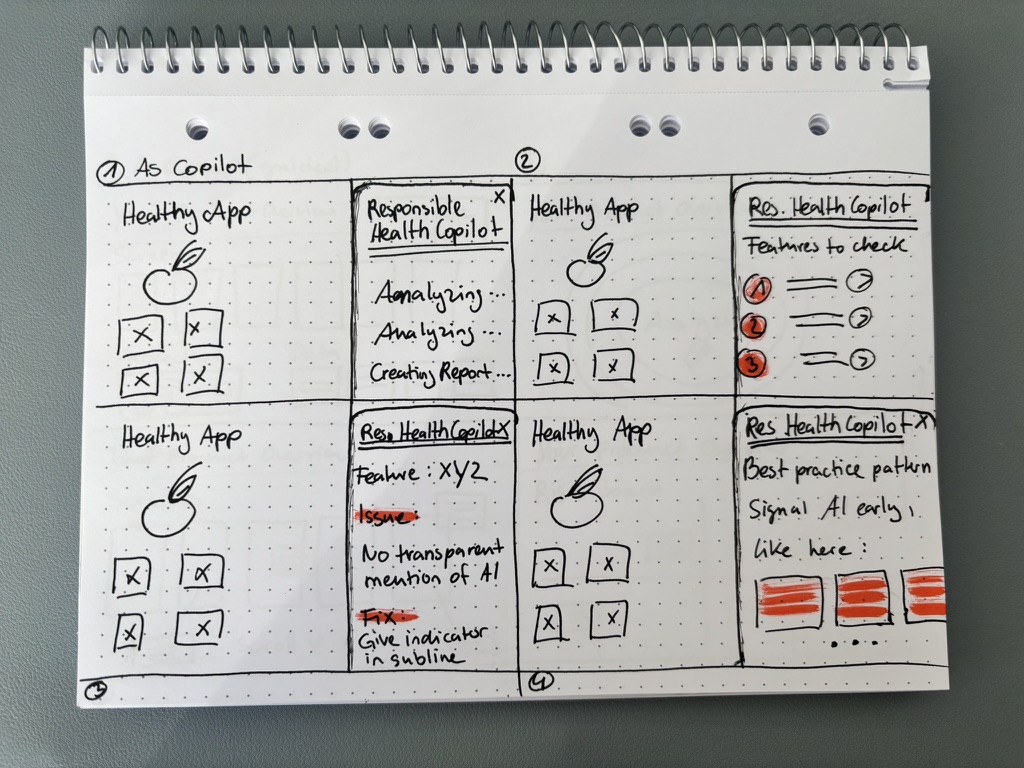 ① As Copilot
Healthy App
x
x
x
x
Responsible X
Health Copilot
Analyzing...
Analyzing...
Creating Report...
②
Healthy App
x
x
x
x
Res. Health Copilot
Features to check
1
2
3
Healthy App
x
x
x
x
Res. Health Copilot X
Feature: XYZ
Issue:
No transparent
mention of AI
Fix:
Give indicator
in subline
③
Healthy App
x
x
x
x
Res Health Copilot X
Best practice pattern
Signal AI early,
like here:
....
④